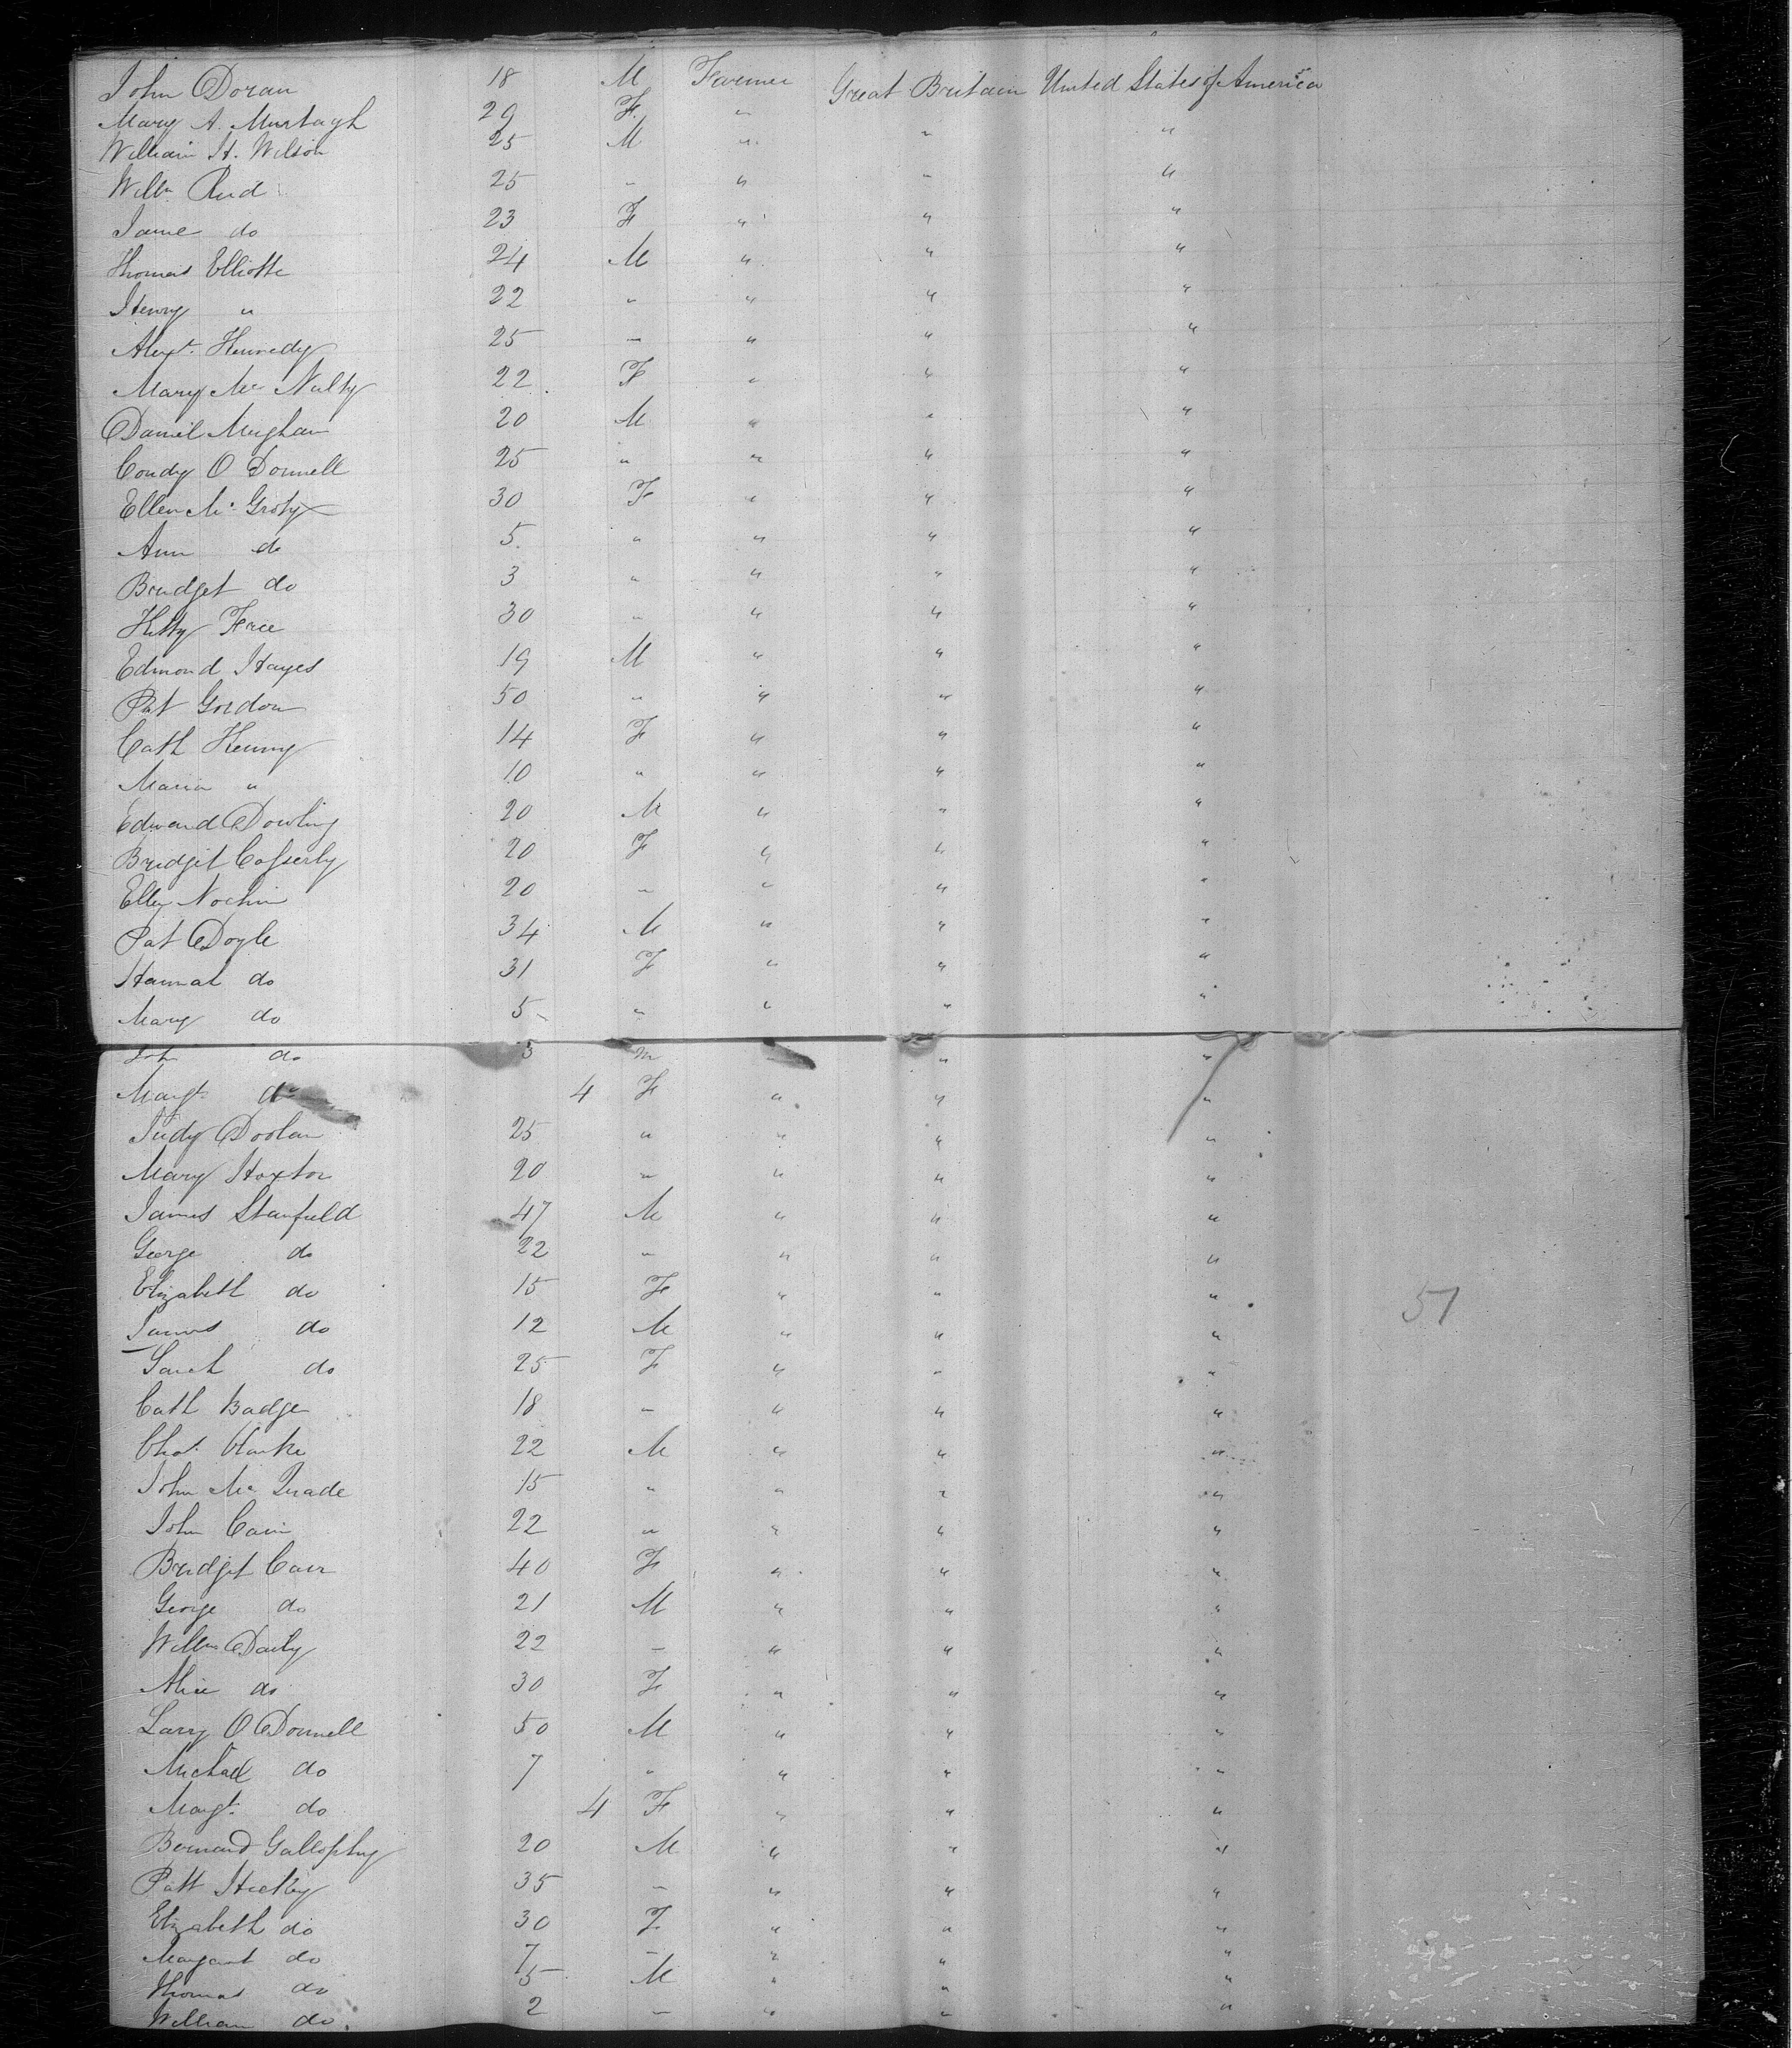 John Doran 18 M Farmer Great Britain United States of America
Mary A. Murtagh 29 F. " " "
William H. Wilson 25 M " " "
Willm Reid 25 " " " "
Jane do 23 F " " "
Thomas Elliotte 24 M " " "
Henry " 22 " " " "
Alexr. Kennedy 25 " " " "
Mary Mc Nulty 22 F " " "
Daniel Meighan 20 M " " "
Condy O Donnell 25 " " " "
Ellen Mc 30 F " " "
Ann do 5 " " " "
Bridget do 3 " " " "
Kitty Free 30 " " " "
Edmond Hayes 19 M " " "
Pat Gordon 50 " " " "
Cath Kenny 14 F " " "
Maria " 10 " " " "
Edward Dowling 20 M " " "
Bridget Casserly 20 F " " "
Ellen 20 " " " "
Pat Doyle 34 M " " "
Hannah do 31 F " " "
Mary do 5 " " " "
John do 3 M " " "
Margt do 4 F " " "
Judy Doolan 25 " " " "
Mary Hoxtor 20 " " " "
James Stanfield 47 M " " "
George do 22 " " " "
Elizabeth do 15 F " " "
James do 12 M " " "
Sarah do 25 F " " "
Cath Badge 18 " " " "
Chas. Clarke 22 M " " "
John Mc Quade 15 " " " "
John Cain 22 " " " "
Bridget Carr 40 F " " "
George do 21 M " " "
Willm Daily 22 " " " "
Alice do 30 F " " "
Larry O Donnell 50 M " " "
Michael do 7 " " " "
Margt. do 4 F " " "
Bernard 20 M " " "
Patt Hickey 35 " " " "
Elizabeth do 30 F " " "
Margaret do 7 " " " "
Thomas do 5 M " " "
William do. 2 " " " "
51